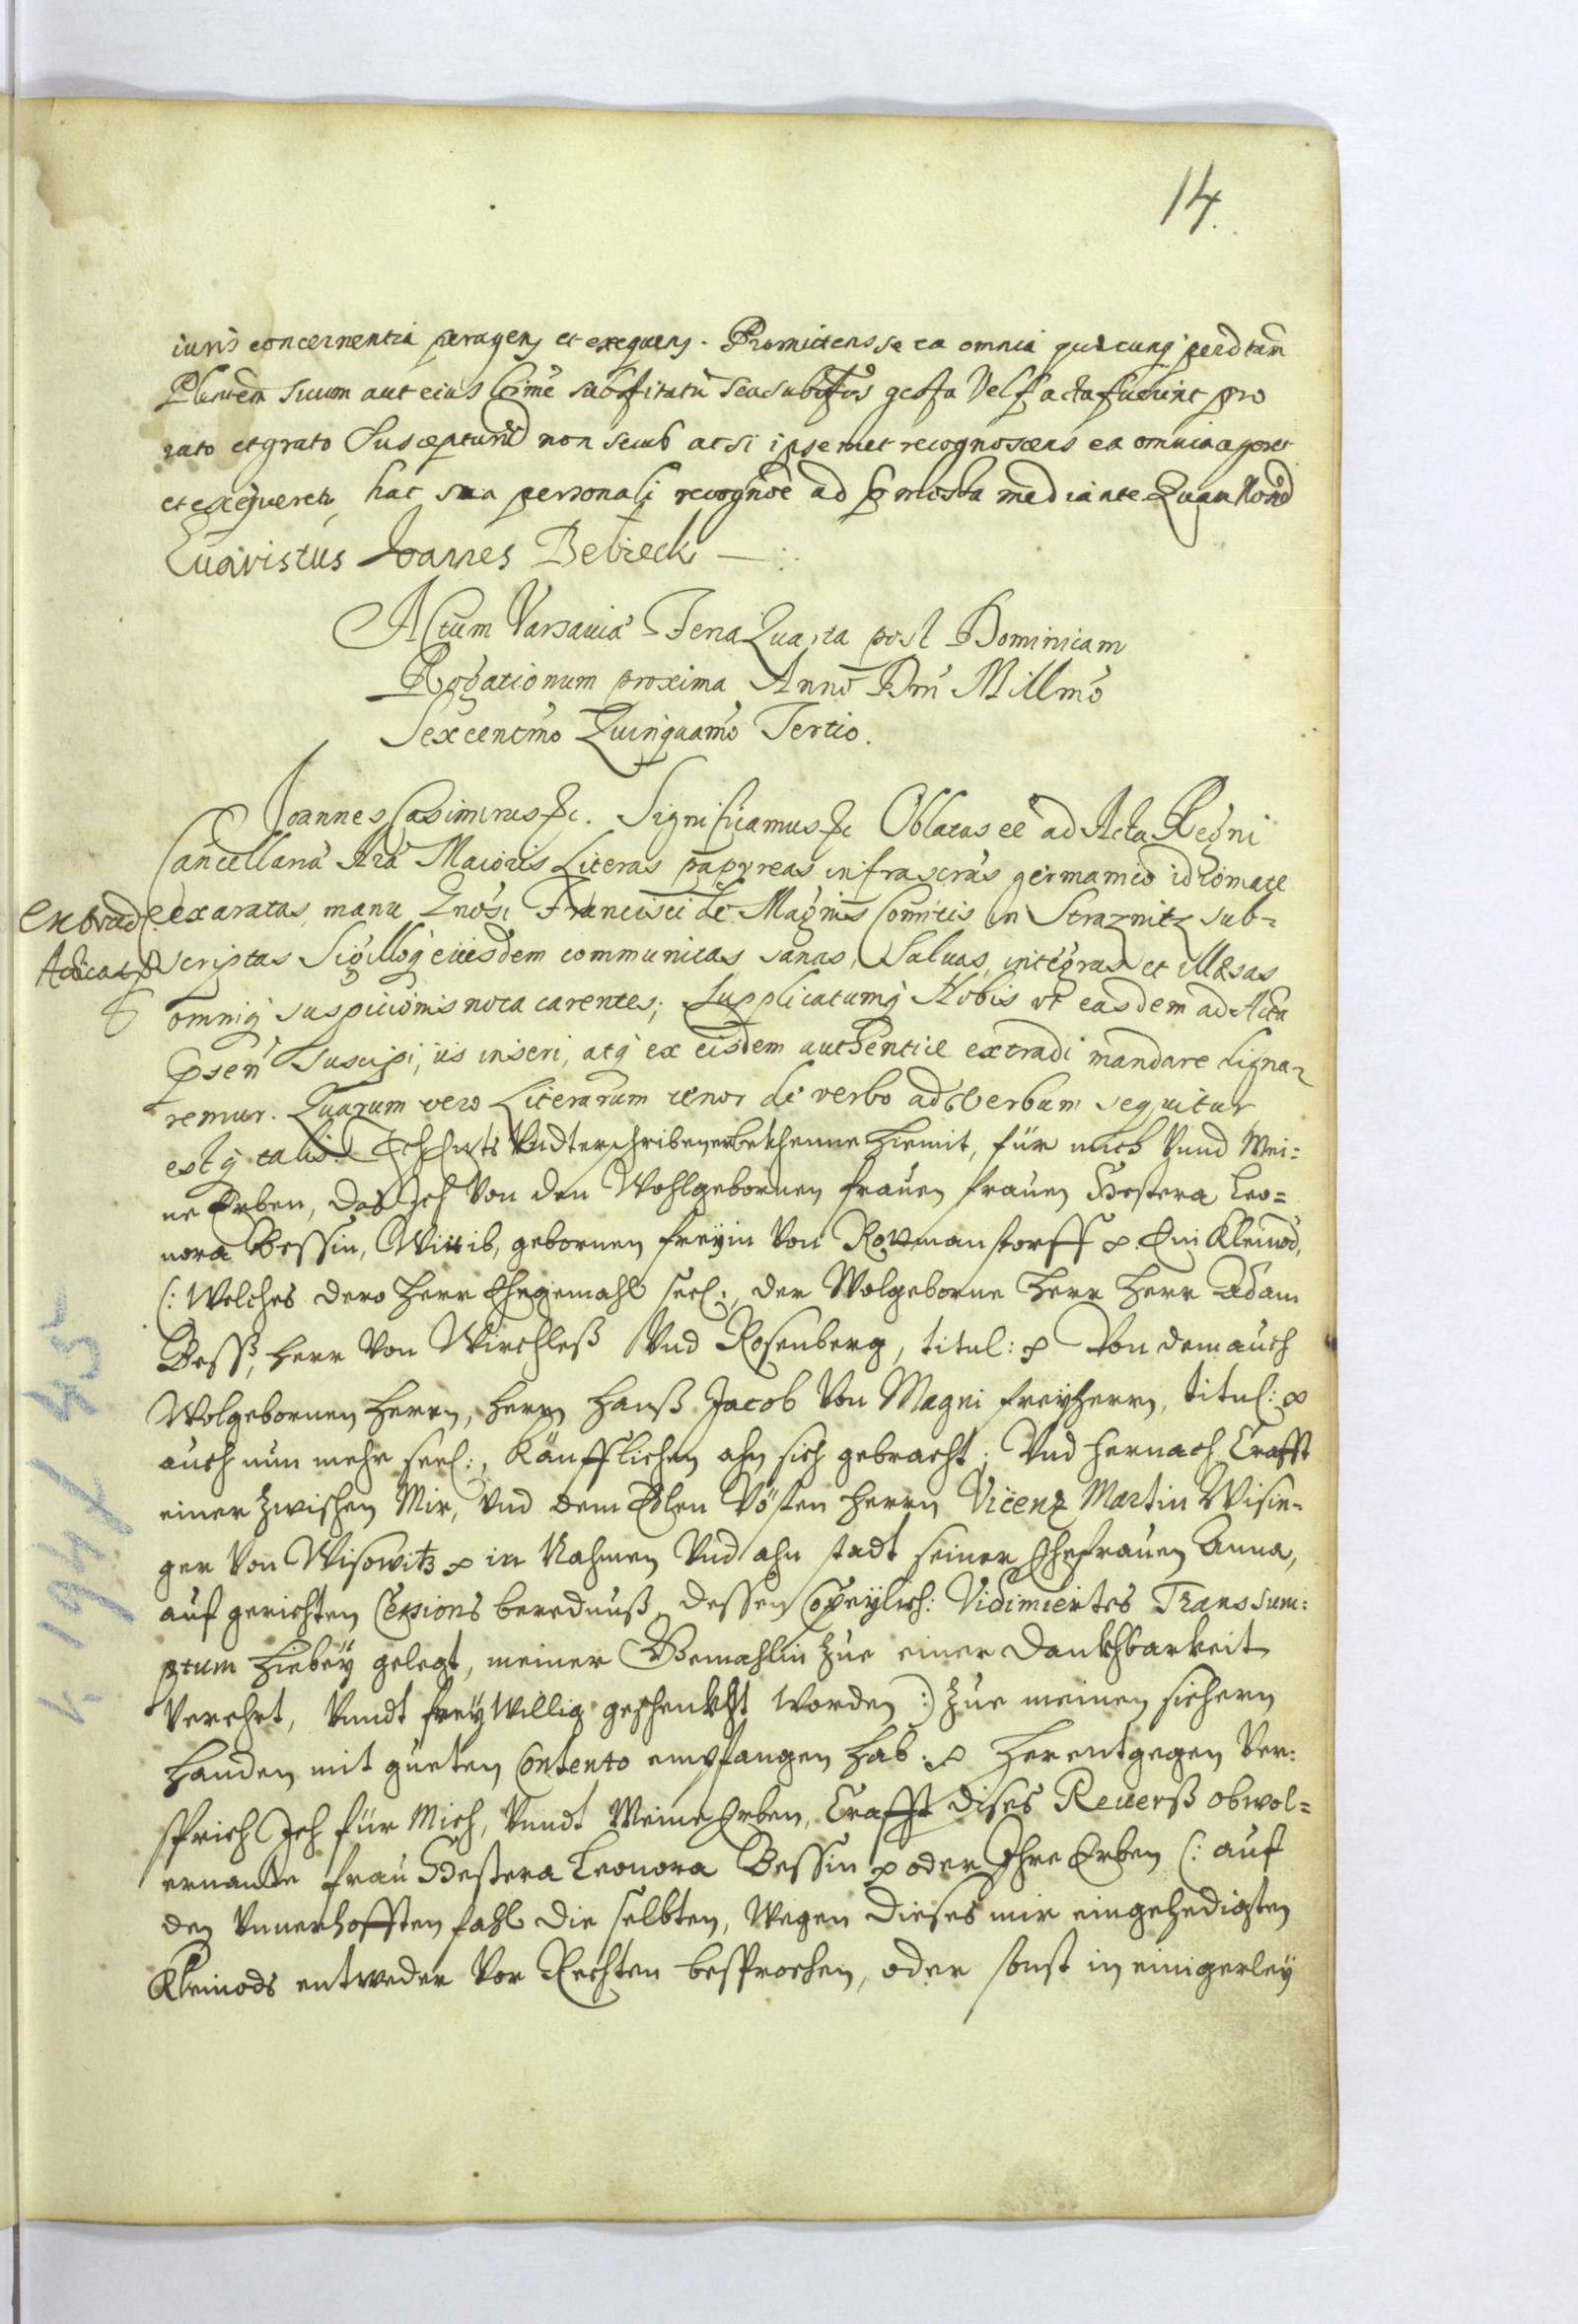 14.
iuris concernentia peragen̄ et exequen̄. Promittens se ea omnia quæcunq̨ per dictam
suum aut eius substitutū seu substitutos gesta vel facta fuerint pro
rato et grato suscepturū non secus ac si ipsemet recognoscens ea omnia ageret
et exequeretur, hac sua personali recognōe ad præmissa mediante.
Euaristus Joannes Betreck —:
Actum Varsauiæ Feria Quarta post Dominicam
Rogationum proxima Anno Dnī Millmo
Sexcentmo Quinquamo Tertio.
Joannes Casimirus &c. Significamus &c Oblatas eē ad Acta Regni
Cancellariæ Nræ Maioris Literas papyreas infrascrās germanico idiomate
exaratas, manu Gnosi Francisci de Magnis Comitis in Straznitz sub-
scriptas Sigilloq̨ eiusdem communitas, sanas, saluas, integras et illæsas
omniq̨ suspicionis nota carentes; Supplicatumq̨ Nobis vt easdem ad Acta
psen̄ suscipi, iis inseri, atq̨ ex eisdem authentice extradi mandare digna-
remur. Quarum vero Literarum tenor de verbo ad verbum sequitur
estq̨ talis. Ich Endts Vndterschribener bekhenne hiemit, für mich Vnnd Mei=
ne Erben, das Ich Von den Wohlgebornen frauen frauen Hestera Leo=
nora Bessin, Wittib, gebornen freÿin Von Rottmanstorff &. Ein Kleinod,
(: Welches dero Herr Ehegemahl seel:, der Wolgeborne Herr Herr Adam
Bess, Herr Von Wirchleß Vnd Rosenberg, titul: & Von dem auch
Wolgebornen Herrn, Herrn Hanß Jacob Von Magni freÿherrn, titul: &
auch nun mehr seel:, Käufflichen ahn sich gebracht; Vnd hernach Crafft
einer zwischen Mir, Vnd dem Edlen Vösten Herrn Vicenz Martin Wisin-
ger Von Wisowitz & in Nahmen Vnd ahn stadt seiner Ehefrauen Anna,
auf gerichten Cessions berednuß dessen Copeÿlich: Vidimiertes Transsum=
ptum hiebeÿ gelegt, meiner Gemahlin zue einer Dankhbarkeit
Verehrt, Vnndt freÿ Willig geschenkht worden :) zue meinen sichern
Handen mit gueten Contento empfangen hab: & Herentgegen Ver:
sprich Ich für Mich, Vnndt Meine Erben, Crafft dises Reuerß obwol=
ernante frau Hestera Leonora Bessin & oder Ihre Erben (: auf
den Vnuerhofften fahl die selbten, Wegen dieses mir eingehedigten
Kleinods entweder Vor Rechten besprochen, oder sonst in einigerleÿ
Extrad
K 194/45